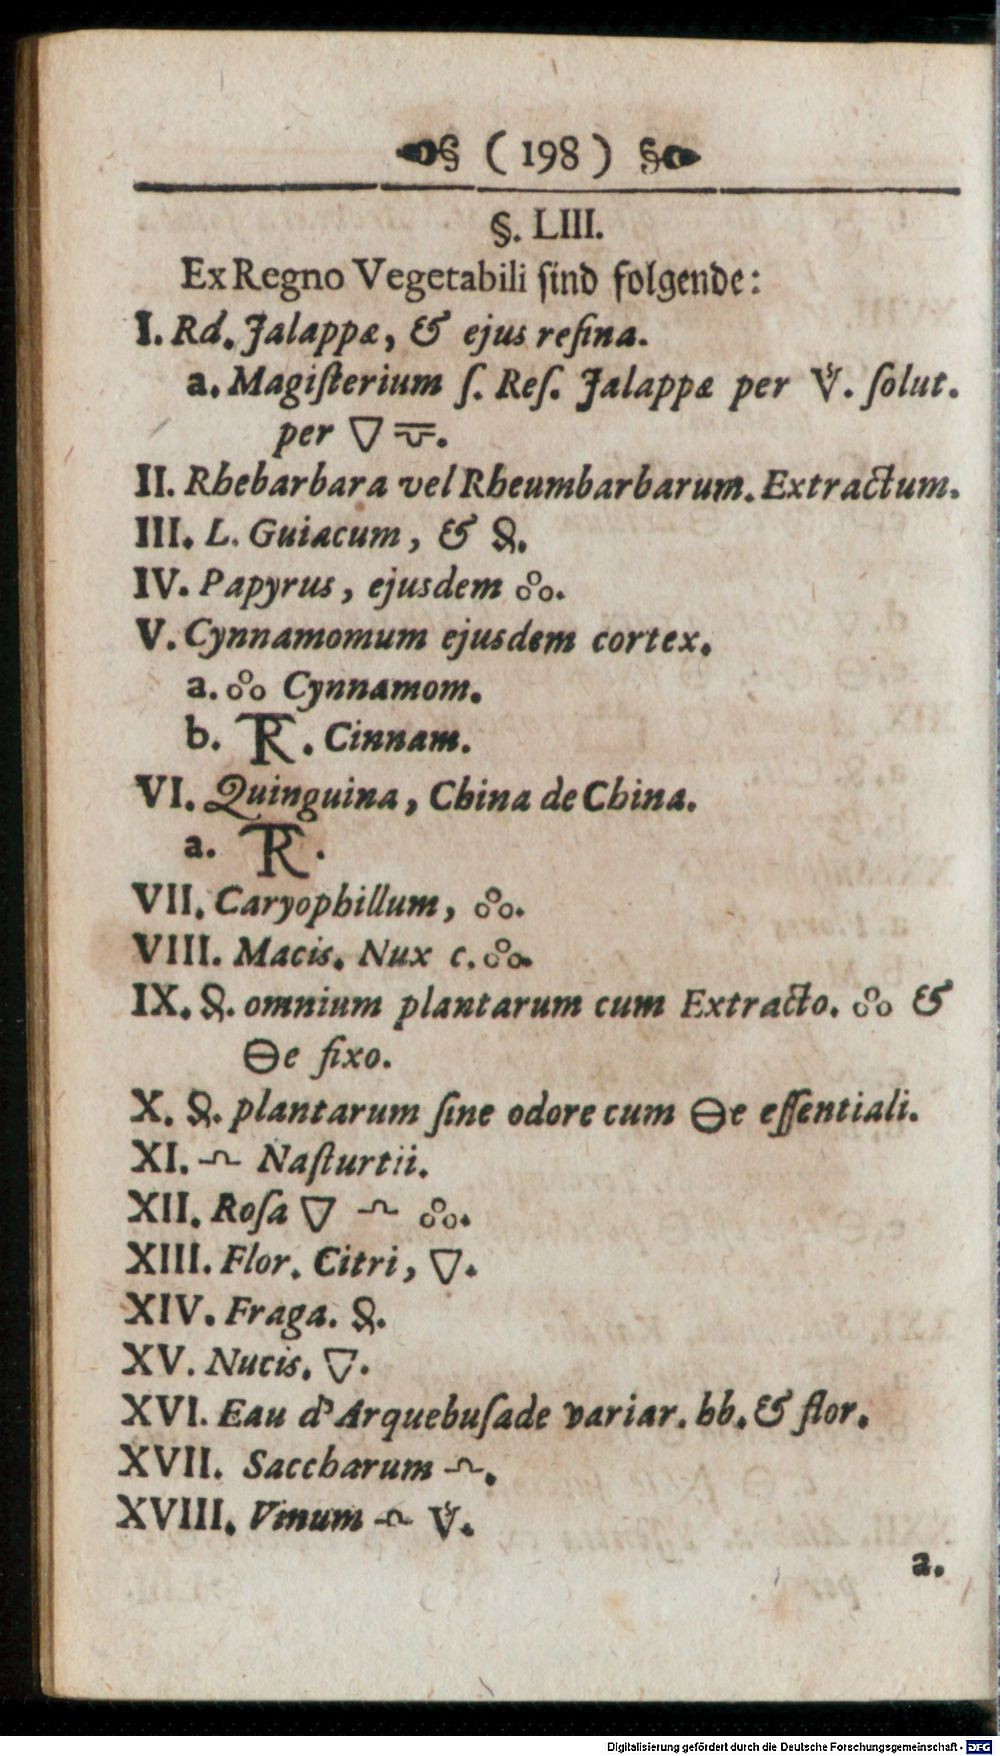 § ( 198 ) §
§. LIII.
Ex Regno Vegetabili ſind folgende:
I. Rd. Jalappæ, & ejus reſina.
a. Magiſterium ſ. Reſ. Jalappæ per 🜈. ſolut.
per 🜄 ♎︎.
II. Rhebarbara vel Rheumbarbarum. Extractum.
III. L. Guiacum, & .
IV. Papyrus, ejusdem ஃ.
V. Cynnamomum ejusdem cortex.
a. ஃ Cynnamom.
b. TR. Cinnam.
VI. Quinguina, China de China.
a. TR.
VII. Caryophillum, ஃ.
VIII. Macis. Nux c. ஃ.
IX. . omnium plantarum cum Extracto. ஃ &
🜔e fixo.
X. . plantarum ſine odore cum 🜔e eſſentiali.
XI. Naſturtii.
XII. Roſa 🜄 ஃ.
XIII. Flor. Citri, 🜄.
XIV. Fraga. .
XV. Nucis. 🜄.
XVI. Eau d'Arquebuſade variar. hb. & flor.
XVII. Saccharum .
XVIII. Vinum 🜈.
a.
Digitalisierung gefördert durch die Deutsche Forschungsgemeinschaft - DFG